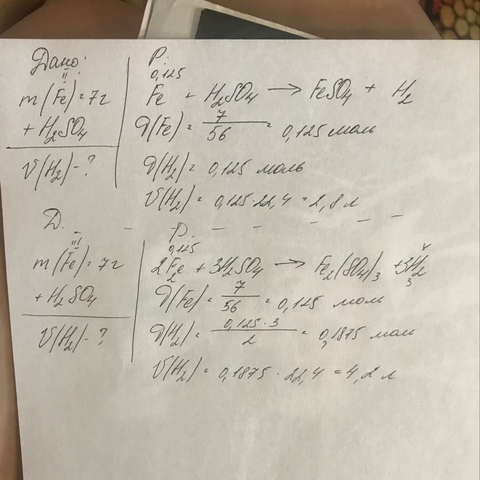 Дано:
"
m(Fe)=7г
+ H₂SO₄
V(H₂)-?
Р.
0,125
Fe + H₂SO₄ → FeSO₄ + H₂
q(Fe)= 7/56 = 0,125 моль
q(H₂)= 0,125 моль
V(H₂)= 0,125·22,4=2,8 л
Д.
"
m(Fe)=7г
+ H₂SO₄
V(H₂)-?
Р.
0,125
2Fe + 3H₂SO₄ → Fe₂(SO₄)₃ +3H₂
2 3
q(Fe)= 7/56 = 0,125 моль
q(H₂)= 0,125·3/2 = 0,1875 моль
V(H₂)= 0,1875·22,4=4,2 л